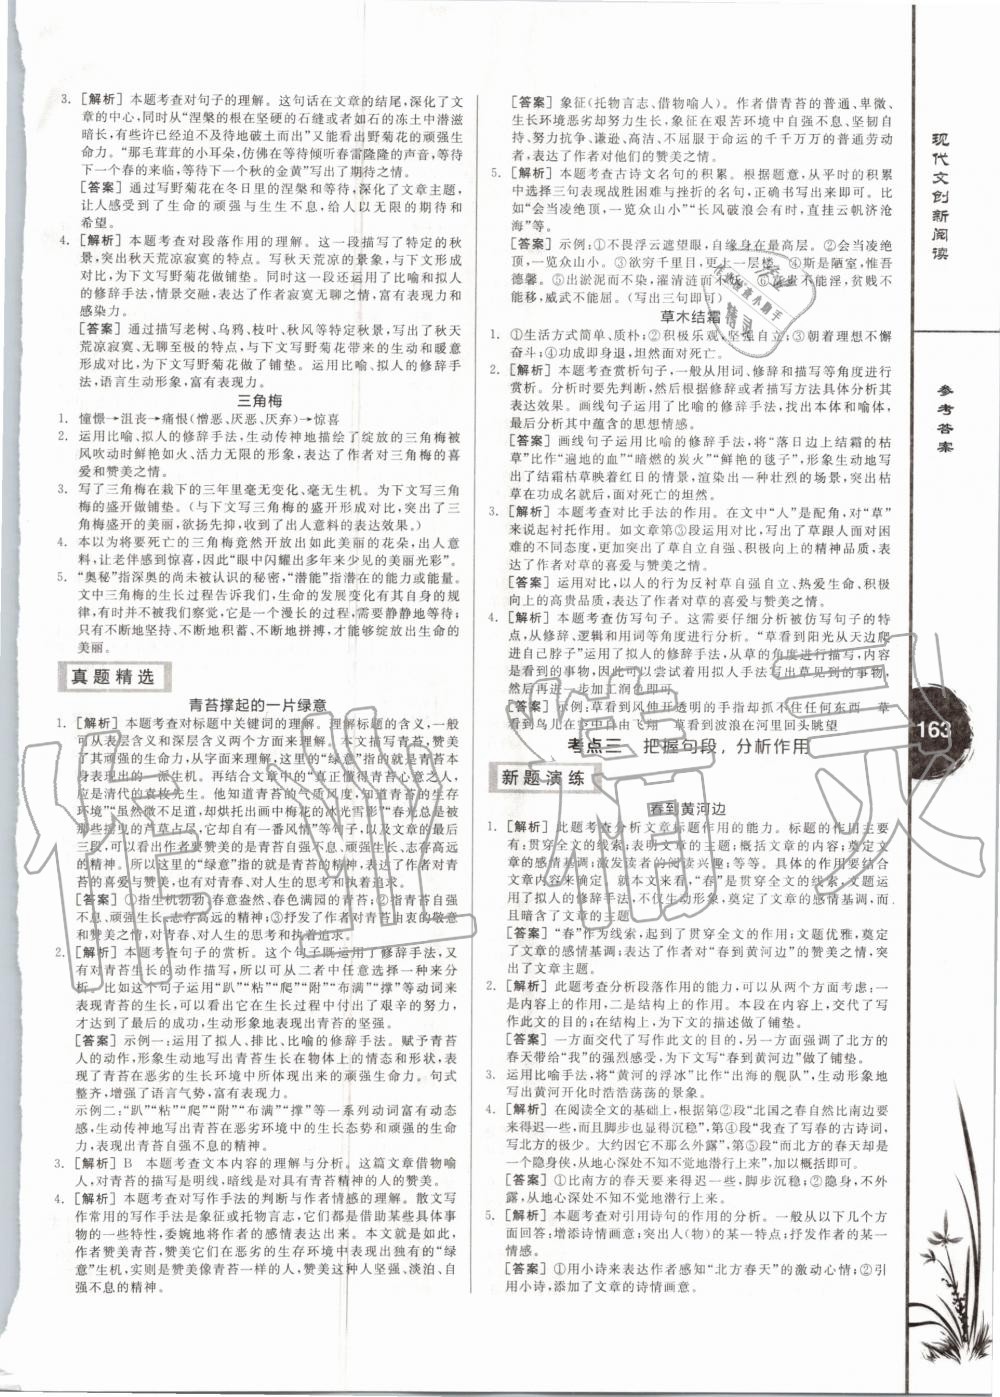 3. [解析] 本题考查对句子的理解。这句话在文章的结尾,深化了文
章的中心,同时从“涅槃的根在坚硬的石缝或者如石的冻土中潜滋
暗长,有些许已经迫不及待破土而出”又能看出野菊花的顽强生
命力。“那毛茸茸的小耳朵,仿佛在等待倾听春雷隆隆的声音,等待
一个春的来临,等待下一个秋的金黄”写出了期待之情。
[答案] 通过写野菊花在冬日里的涅槃和生长,深化了文章主题,
让人感受到了生命的顽强与生生不息,给人以无限的期待和
希望。
4. [解析] 本题考查对段落作用的理解。这一段描写了特定的秋
景,突出秋天荒凉寂寞的特点。写秋天荒凉寂寞的景象,与下文形
成对比,为下文写野菊花做铺垫。同时这一段还运用了比喻和拟人
的修辞手法,情景交融,表达了作者寂寞无聊之情,富有表现力和
感染力。
[答案] 通过描写老树、乌鸦、枝叶、秋风等特定秋景,表现了秋天
荒凉寂寞的景象,与下文写野菊花带给作者的希望、温暖和暖意
形成对比,为下文写野菊花做了铺垫。运用比喻、拟人的修辞手
法,语言生动形象,富有表现力。
三角梅
1. 憧憬→沮丧→痛恨(憎恶、厌恶、厌弃)→惊喜
2. 运用比喻、拟人的修辞手法,生动传神地描绘了绽放的三角梅被
风吹动时鲜艳如火、活力无限的形象,表达了作者对三角梅的喜
爱和赞美之情。
3. 写了三角梅在栽下的三年里毫无变化、毫无生机。为下文写三角
梅的盛开做铺垫。(与下文写三角梅的盛开形成对比,突出了三
角梅盛开的美丽,欲扬先抑,收到了出人意料的表达效果。)
4. 本以为将要死亡的三角梅竟然开放出如此美丽的花朵,出人意
料,让老伴感到惊喜,因此“眼中闪耀出多年来少见的美丽光彩”。
5. “奥秘”指深奥的尚未被认识的秘密,“潜能”指潜在的能力或能量。
文中三角梅的生长过程告诉我们,生命的发展变化有其自身的规
律,有时并不被我们察觉,它是一个漫长的过程,需要静静地等待;
只有不断地坚持、不断地积蓄、不断地拼搏,才能绽放出生命的
美丽。
真题精选
青苔撑起的一片绿意
1. [解析] 本题考查对标题中关键词的理解。理解标题的含义,一般
可从表层含义和深层含义两个方面来理解。文章描写青苔,赞美
了其顽强的生命力,从字面来理解,这里的“绿意”指的就是青苔
本身表现出的一派生机。再结合文章中的“真正懂得青苔心意之人,
应是清代的袁枚先生。他知道青苔的气质风度,知道青苔的生存
环境”“虽然微不足道,却烘托出画中梅花的冰光雪影”“春光总是被
那些摇曳的花草占尽,它却自有一番风情”等句子,以及文章的最后
三段,可以看出作者要赞美的是青苔自强不息、顽强生存、志存高远
的精神。所以这里的“绿意”指的就是青苔的精神,表达了作者对青苔
的喜爱与赞美,也有对青春、对人生的思考和执着追求。
[答案] ①指生机勃勃、春意盎然、春色满园的青苔;②指青苔自强
不息、顽强生存、志存高远的精神;③抒发了作者对青苔由衷的敬意
和赞美之情,对青春、对人生的思考与执着追求。
2. [解析] 本题考查句子的赏析。这个句子既运用了修辞手法,又
有对青苔生长的动作描写,所以可从二者中任意选择一种来分
析。比如这个句子运用“趴”“粘”“爬”“附”“布满”“撑”等动词来
表现青苔的生长,可以看出它在生长过程中付出了艰辛的努力,
才达到了最后的成果,生动形象地表现出青苔的坚强。
[答案] 示例一:运用了拟人、排比、比喻的修辞手法。赋予青苔
人的动作,形象生动地写出青苔生长在物体上的情态和形状,表
现了青苔在恶劣的生长环境中所体现出的顽强生命力。句式
整齐,增强了语言气势,富有表现力。
示例二:“趴”“粘”“爬”“附”“布满”“撑”等一系列动词富有动态
感,生动传神地写出了青苔在恶劣环境中的生长态势和顽强生命
力,表现出青苔自强不息的精神。
3. [解析] B 本题考查文本内容的理解与分析。这篇文章借物喻
人,对青苔的描写是明线,暗线是对具有青苔精神的人的赞美。
4. [解析] 本题考查对写作手法的判断与作者情感的理解。散文写
作常用的写作手法是象征或托物言志,常常用来借某些具体事物
的一些特性,委婉地将某种情感寄寓其中表达出来。本文就是如此,
作者借赞美青苔,赞美它们在恶劣的生存环境中表现出独有的“绿
意”生机,实则是赞美像青苔一样的人们,赞美人类坚强、淡泊、自强
不息、志存高远的精神。
[答案] 象征(托物言志、借物喻人)。作者借青苔的普通、卑微、
生长环境恶劣却努力生长,象征在艰苦环境中自强不息、坚韧自
持、努力抗争、谦逊、高洁、不屈服于命运的千千万万的普通劳动
者,表达了作者对他们的赞美之情。
5. [解析] 本题考查古诗文名句的积累。根据题意,从平时的积累
中选择三句表现战胜困难与挫折的名句,正确书写出来即可。比
如“会当凌绝顶,一览众山小”“长风破浪会有时,直挂云帆济沧
海”等。
[答案] 示例:①不畏浮云遮望眼,自缘身在最高层。②会当凌绝
顶,一览众山小。③欲穷千里目,更上一层楼。④斯是陋室,惟吾
德馨。⑤出淤泥而不染,濯清涟而不妖。⑥富贵不能淫,贫贱不
能移,威武不能屈。(写出三句即可)
草木结霜
1. ①生活方式简单、质朴;②积极乐观,坚强自立;③朝着理想不懈
奋斗;④功成即退,坦然面对死亡。
2. [解析] 本题考查赏析句子,一般从用词、修辞和描写等角度进行
赏析。分析时要先判断,然后根据修辞或者描写方法具体分析其
表达效果。画线句子运用了比喻的修辞手法,找出本体和喻体,
最后分析其中蕴含的思想感情。
[答案] 画线句子运用了比喻的修辞手法,将“落日边上结霜的枯
草”比作“遍地的血”“暗燃的炭火”“鲜艳的毯子”,形象生动地写
出了结霜枯草映着红日的情景,渲染出一种壮烈的场景,突出枯
草在功成名就后,面对死亡的坦然。
3. [解析] 本题考查对比手法的作用。在文中“人”是配角,对“草”
来说起衬托作用。如文章第③段运用对比,写出了草跟人面对困
难的不同表现,突出了草自立自强、积极向上的精神品质,表达了
作者对草的喜爱与赞美之情。
[答案] 运用对比,以人的行为反衬草自立自强、热爱生命、积极
向上的高贵品质,表达了作者对草的喜爱与赞美之情。
4. [解析] 本题考查仿写句子。这需要仔细分析被仿写句子的特
点,从修辞、逻辑和用词等方面来模仿写作。“草看到阳光从天边爬
进自己身体”运用了拟人手法,从草的角度进行描写,内容是它
看到的事物,因此可以尝试着用拟人手法写出草见到的事物,然
后进一步加工润色即可。
[答案] 示例:草看到风伸开透明的手指却抓不住任何东西 草
看到鸟儿在空中自由飞翔 草看到波浪在河里回头眺望
考点三 把握句段,分析作用
新题演练
春到黄河边
1. [解析] 此题考查分析文章标题作用的能力。标题的作用主要
有:贯穿全文的线索;表明文章的主题;概括文章的内容;奠定文
章的感情基调;激发读者的阅读兴趣;等等。具体的作用要结合
文章内容来确定。本文来看,“春”是贯穿全文的线索,文题运
用了拟人手法,不仅生动形象,奠定了文章的感情基调,而
且暗含了文章的主题。
[答案] “春”作为线索,起到了贯穿全文的作用;文题优雅,奠定
了文章的感情基调;表达了作者对“春到黄河边”的赞美之情,突
出了文章主题。
2. [解析] 此题考查分析段落作用的能力,可以从两个方面考虑:一
是内容上的作用,二是结构上的作用。本段在内容上,交代了写
作此文的目的;在结构上,为下文的描述做了铺垫。
[答案] 一方面交代了写作此文的目的,另一方面强调了北方的
春天带给“我”的强烈感受,为下文写“春到黄河边”做了铺垫。
3. 运用比喻手法,将“黄河的浮冰”比作“出海的舰队”,生动形象地
写出黄河开化时浩浩荡荡的景象。
4. [解析] 在阅读全文的基础上,根据第②段“北国之春自然比南边要
来得迟一些,脚步也显得沉稳”,第④段“我查了写春的古诗词,
写北方的极少。大约因它不那么外露”,第⑤段“而北方的春天却是
一个隐身侠,从地心深处不知不觉潜行上来”,分析概括即可。
[答案] ①比南方的春天要来得迟一些,脚步沉稳;②隐身,不外
露,从地心深处不知不觉潜行上来。
5. [解析] 本题考查对引用诗句的作用的分析。一般从以下几个方面
回答:增添诗情画意;突出人(物)的某一特点;抒发作者的某一
情感。
[答案] ①用小诗来表达作者感知“北方春天”的激动心情;②引
用小诗,添加了文章的诗情画意。
现代文创新阅读
参考答案
163
作业精灵